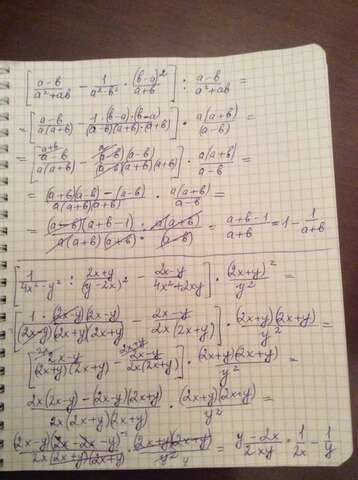 [(a-b)/(a²+ab) - 1/(a²-b²) · (b-a)²/(a+b)] : (a-b)/(a²+ab) =
= [(a-b)/(a(a+b)) - 1·(b-a)·(b-a)/((a-b)(a+b)·(a+b))] · a(a+b)/(a-b) =
= [(a-b)/(a(a+b)) - (a-b)(a-b)/((a-b)(a+b)(a+b))] · a(a+b)/(a-b) =
= ((a+b)(a-b) - (a-b))/(a(a+b)(a+b)) · a(a+b)/(a-b) =
= (a-b)(a+b-1)·a(a+b)/(a(a+b)(a+b)·(a-b)) = (a+b-1)/(a+b) = 1 - 1/(a+b)
[1/(4x²-y²) : (2x+y)/(y-2x)² - (2x-y)/(4x²+2xy)] · (2x+y)²/y² =
[1·(2x-y)(2x-y)/((2x-y)(2x+y)(2x+y)) - (2x-y)/(2x(2x+y))] · (2x+y)(2x+y)/y² =
[(2x-y)/((2x+y)(2x+y)) - (2x-y)/(2x(2x+y))] · (2x+y)(2x+y)/y² =
(2x(2x-y) - (2x-y)(2x+y))/(2x(2x+y)(2x+y)) · (2x+y)(2x+y)/y² =
(2x-y)(2x-2x-y)/(2x(2x+y)(2x+y)) · (2x+y)(2x+y)/y² = (y-2x)/(2xy) = 1/2x - 1/y